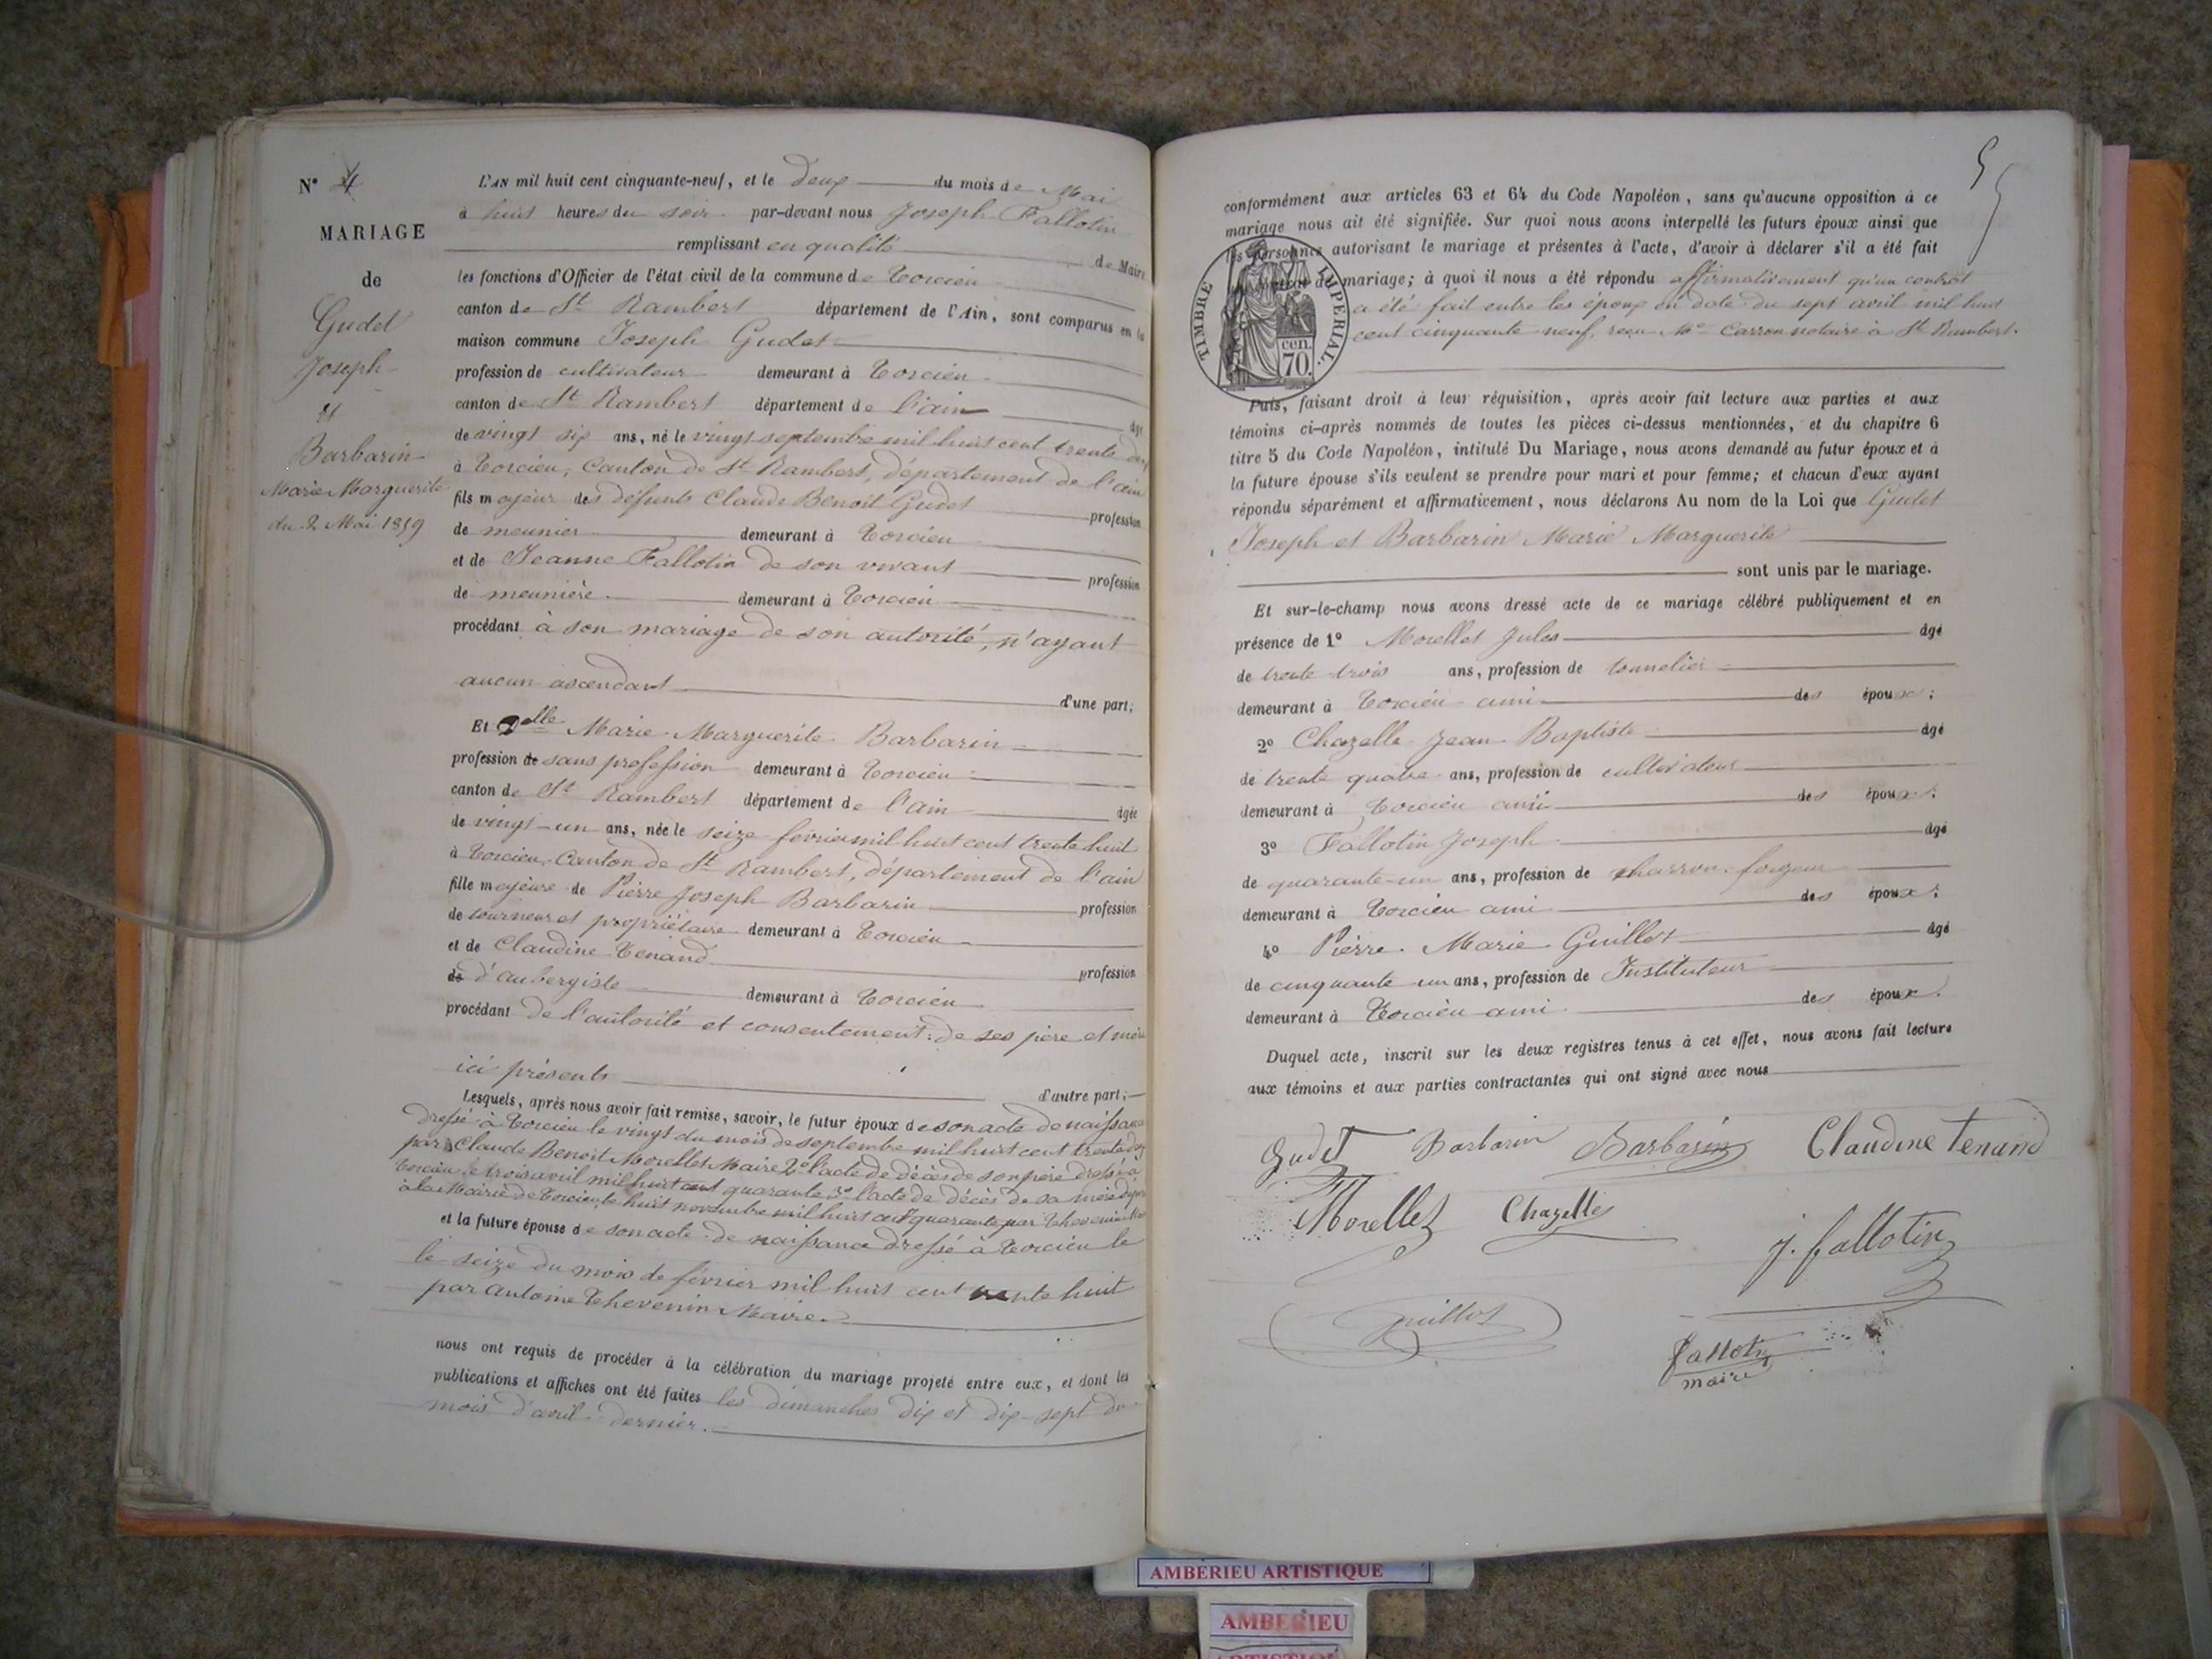 N° 4
MARIAGE
de
Gudet
Joseph
et
Barbarin
Marie Marguerite
du 2 Mai 1859
L'AN mil huit cent cinquante-neuf, et le deux du mois de Mai
à huit heures du soir par-devant nous Joseph Fallotin
remplissant en qualité de Maire
les fonctions d'Officier de l'état civil de la commune de Torcieu
canton de St Rambert département de l'Ain, sont comparus en la
maison commune Joseph Gudet
profession de cultivateur demeurant à Torcieu
canton de St Rambert département de l'ain âgé
de vingt six ans, né le vingt septembre mil huit cent trente deux
à Torcieu, Canton de St Rambert, département de l'ain
fils majeur des défunts Claude Benoit Gudet profession
de meunier demeurant à Torcieu
et de Jeanne Fallotin de son vivant profession
de meunière demeurant à Torcieu
procédant à son mariage de son autorité, n'ayant
aucun ascendant d'une part;
Et Delle Marie Marguerite Barbarin
profession de sans profession demeurant à Torcieu
canton de St Rambert département de l'ain âgée
de vingt-un ans, née le seize fevrier mil huit cent trente huit
à Torcieu, Canton de St Rambert, département de l'ain
fille majeure de Pierre Joseph Barbarin profession
de tourneur et propriétaire demeurant à Torcieu
et de Claudine Tenand profession
de d'aubergiste demeurant à Torcieu
procédant de l'autorité et consentement de ses père et mère
ici présents d'autre part;
Lesquels, après nous avoir fait remise, savoir, le futur époux de son acte de naissance
dressé à Torcieu le vingt du mois de septembre mil huit cent trente deux
par Claude Benoit Morellet Maire 2° l'acte de décès de son père dressé à
Torcieu le trois avril mil huit cent quarante 3° l'acte de décès de sa mère
à la Mairie de Torcieu le huit novembre mil huit cent quarante par Thevenin
et la future épouse de son acte de naissance dressé à Torcieu le
le seize du mois de février mil huit cent trente huit
par Antoine Thevenin Maire.
nous ont requis de procéder à la célébration du mariage projeté entre eux, et dont les
publications et affiches ont été faites les dimanches dix et dix-sept du
mois d'avril dernier.
55
conformément aux articles 63 et 64 du Code Napoléon, sans qu'aucune opposition à ce
mariage nous ait été signifiée. Sur quoi nous avons interpellé les futurs époux ainsi que
les personnes autorisant le mariage et présentes à l'acte, d'avoir à déclarer s'il a été fait
de mariage; à quoi il nous a été répondu affirmativement qu'un contrat
a été fait entre les époux en date du sept avril mil huit
cent cinquante neuf, reçu Me Carron notaire à St Rambert.
TIMBRE IMPERIAL.
cen.
70.
Puis, faisant droit à leur réquisition, après avoir fait lecture aux parties et aux
témoins ci-après nommés de toutes les pièces ci-dessus mentionnées, et du chapitre 6
titre 5 du Code Napoléon, intitulé Du Mariage, nous avons demandé au futur époux et à
la future épouse s'ils veulent se prendre pour mari et pour femme; et chacun d'eux ayant
répondu séparément et affirmativement, nous déclarons Au nom de la Loi que Gudet
Joseph et Barbarin Marie Marguerite
sont unis par le mariage.
Et sur-le-champ nous avons dressé acte de ce mariage célébré publiquement et en
présence de 1° Morellet Jules âgé
de trente trois ans, profession de tonnelier
demeurant à Torcieu ami des époux;
2° Chazelle Jean Baptiste âgé
de trente quatre ans, profession de cultivateur
demeurant à Torcieu ami des époux;
3° Fallotin Joseph âgé
de quarante-un ans, profession de charron forgeur
demeurant à Torcieu ami des époux;
4° Pierre Marie Guillot âgé
de cinquante un ans, profession de Instituteur
demeurant à Torcieu ami des époux.
Duquel acte, inscrit sur les deux registres tenus à cet effet, nous avons fait lecture
aux témoins et aux parties contractantes qui ont signé avec nous
Gudet Barbarin Barbarin Claudine Tenand
Morellet Chazelle
J. fallotin
Guillot
Fallotin
maire
AMBERIEU ARTISTIQUE
AMBERIEU
ARTISTIQUE